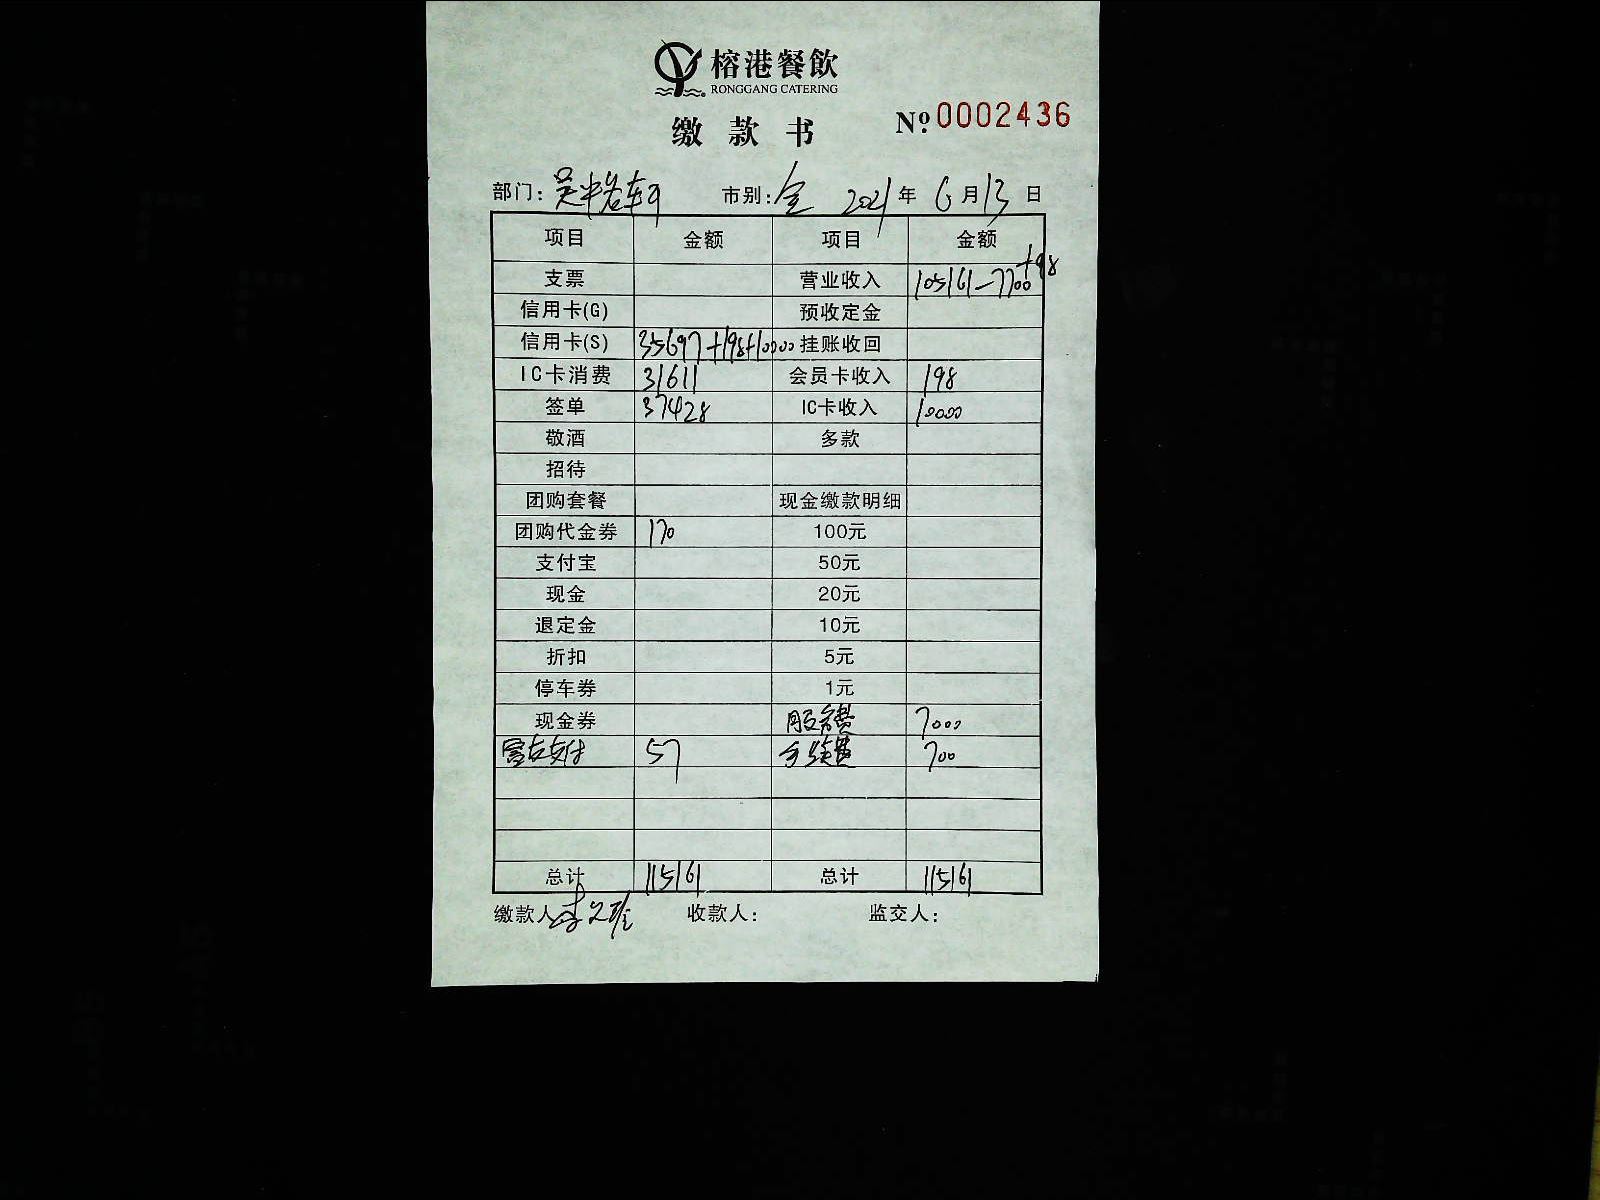 榕港餐飲
RONGGANG CATERING
缴款书 №:0002436
部门: 吴中路 市别: 全 2021年6月13日
项目 金额 项目 金额
支票 营业收入 105161-7700+98
信用卡(G) 预收定金
信用卡(S) 35697+198+10000 挂账收回
IC卡消费 31611 会员卡收入 198
签单 37428 IC卡收入 10000
敬酒 多款
招待
团购套餐 现金缴款明细
团购代金券 170 100元
支付宝 50元
现金 20元
退定金 10元
折扣 5元
停车券 1元
现金券 服务费 7000
支付 57 手续费 700
总计 115161 总计 115161
缴款人 李 收款人: 监交人: